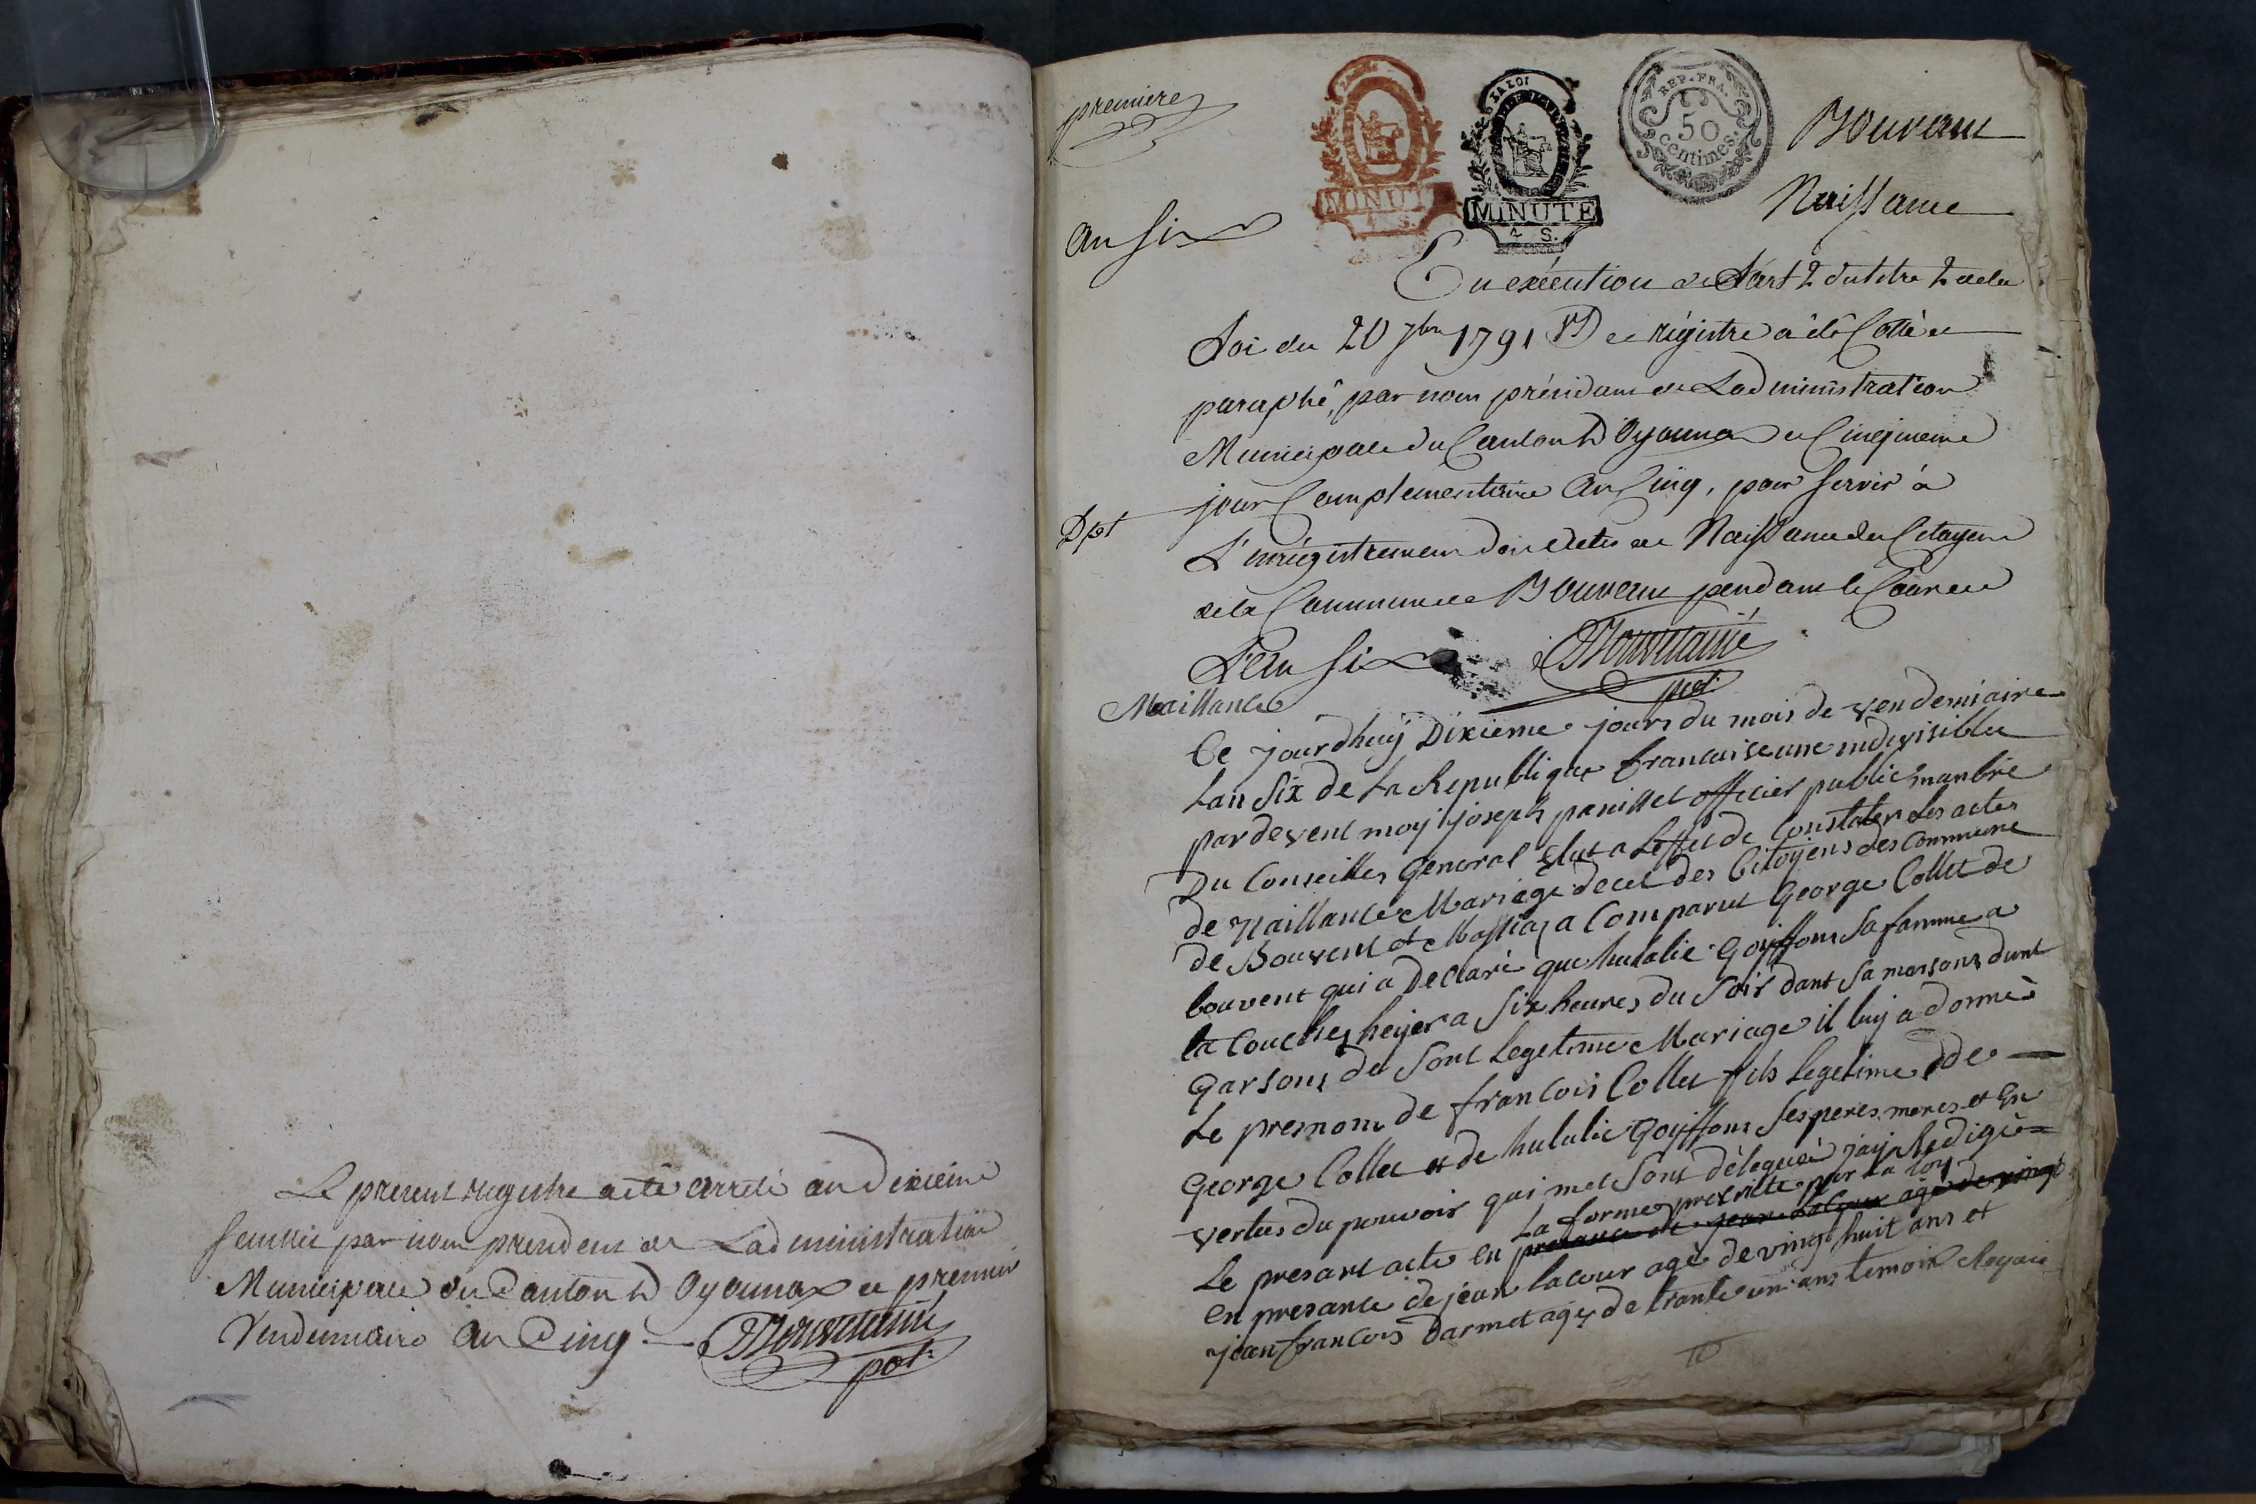 Le present registre a été arreté au dixieme
feuillet par nous president de Ladministration
Municipale du Canton d'Oyonnax ce premier
Vendemiaire an Cinq
pdt
premiere
A LA LOI
MINUTE
4 S.
MINUTE
4 S.
REP. FRA.
50
centimes.
Bouvent
Naissance
an six
En exécution de L'art 2 du titre 2 de la
Loi du 20 7bre 1791 ce régistre a été Cotté et
paraphé, par nous président de Ladministration
Municipale du Canton d'Oyonnax ce Cinquieme
jour Complementaire an Cinq, pour servir à
Dpt
L'enrégistrement des actes de Naissance des Citoyens
de la Commune de Bouvent pendant le Cours de
L'an six
pdt
Naillance
Ce jourdhuij Dixieme jours du mois de vendemiaire
Lan six de La Republique francaise une indivisible
pardevent moy joseph panisset officier public manbre
Du Conseilles General Elut a Leffet de Constater Les actes
de Naillance Mariage decet des Citoyens des Commune
de Bouvent et Massiaz a Comparut George Collet de
bouvent qui a Declaré que hulalie Goyffons sa famme a
la Couches heyer a six heures du soir dant sa maisons dunt
garsons de sont Legetime Mariage il luij a donné
Le prenom de francois Collet fils Legetime de
George Collet et de hulalie Goyffons ses peres meres et En
vertus du pouvoir qui met sont déleguéé jaij Redigéé
La forme prescritte par La loy
Le presant acte en presance de jean Lacour agé de vingt
en presance de jean Lacour agé de vingt huit ans et
jean francois Darmet agéz de trante un ans temoix